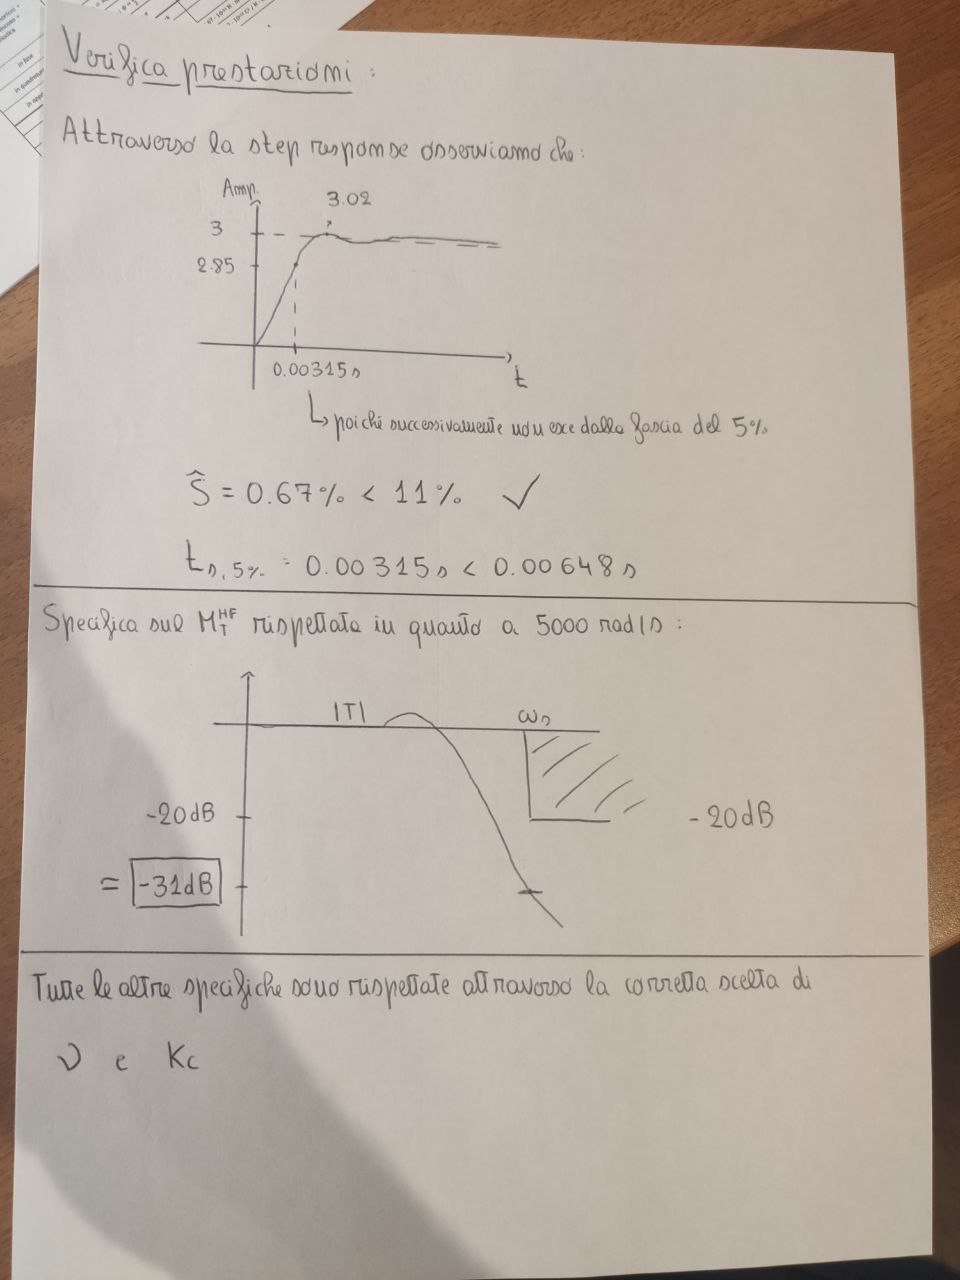 Verifica prestazioni :
Attraverso la step response osserviamo che:
Amp.
3.02
3
2.85
0.00315s
t
↳ poiché successivamente non esce dalla fascia del 5%
Ŝ = 0.67% < 11% ✓
ts,5% = 0.00315s < 0.00648s
Specifica sul M_T^HF rispettata in quanto a 5000 rad/s :
|T|
ωs
-20dB
- 20dB
= -31dB
Tutte le altre specifiche sono rispettate attraverso la corretta scelta di
ν e Kc